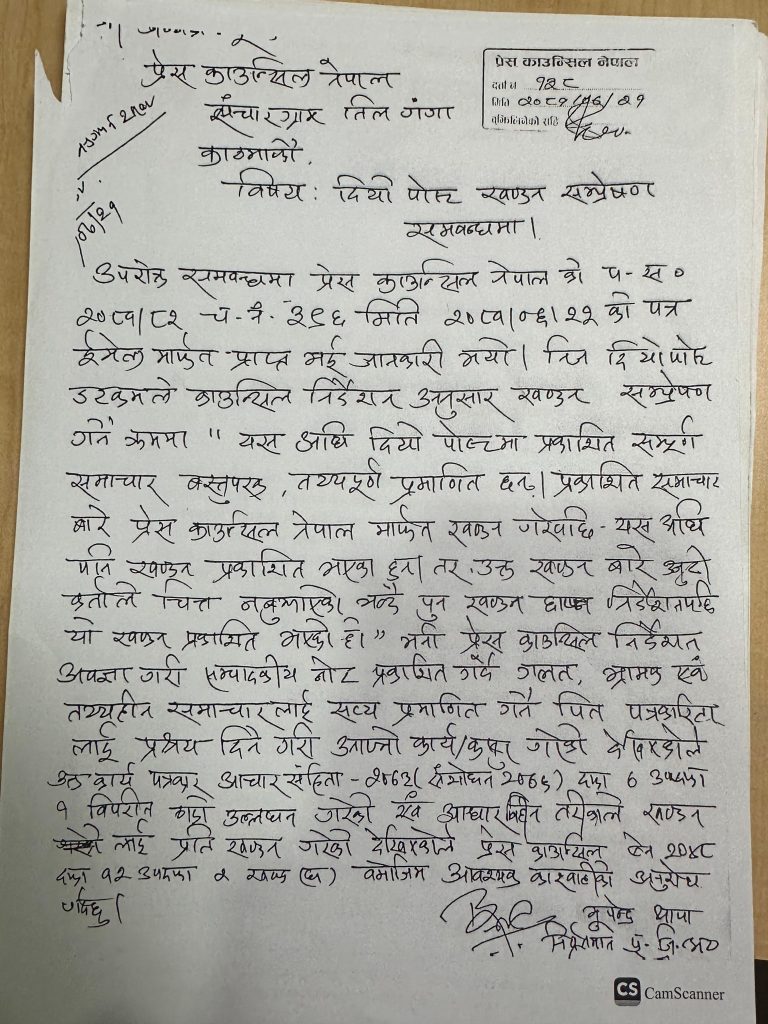 प्रेस काउन्सिल नेपाल
दर्ता नं
मिति २०८१/०६/२१
प्रेस काउन्सिल नेपाल
संचारग्राम तिलगंगा
काठमाडौं.
०६/२१
विषय: दियो पोस्ट खण्डन सम्प्रेषण
सम्वन्धमा।
उपरोक्त सम्वन्धमा प्रेस काउन्सिल नेपाल को प-स०
२०८१/८२ च-नं- ३९६ मिति को पत्र
ईमेल मार्फत प्राप्त भई जानकारी भयो। निज दियोपोस्ट
डटकमले काउन्सिल निर्देशन अनुसार खण्डन सम्प्रेषण
गर्ने क्रममा "यस अघि दियो पोस्टमा प्रकाशित सम्पूर्ण
समाचार बस्तुपरक, तथ्यपूर्ण प्रमाणित छन्। प्रकाशित समाचार
बारे प्रेस काउन्सिल नेपाल मार्फत खण्डन गरेपछि यस अघि
पनि खण्डन प्रकाशित भएका हुन। तर उक्त खण्डन बारे
कर्ताले चित्त नबुझाएको भन्दै पुन खण्डन छाप्न निर्देशनपछि
यो खण्डन प्रकाशित भएको हो" भनी प्रेस काउन्सिल निर्देशन
अवज्ञा गरी सम्पादकीय नोट प्रकाशित गर्दै गलत, भ्रामक एवं
तथ्यहीन समाचारलाई सत्य प्रमाणित गर्ने पित पत्रकारिता
लाई प्रश्रय दिने गरी कार्य/ देखिएकोले
उक्त कार्य पत्रकार आचार संहिता - २०७३ (संशोधन २०७६) दफा ७ उपदफा
१ विपरीत उल्लंघन गरेको एवं आधारविहिन तरीकाले खण्डन
लाई प्रति खण्डन गरेको देखिएकोले प्रेस काउन्सिल ऐन २०४८
दफा १२ उपदफा २ खण्ड (घ) वमोजिम आवश्यक कारवाहीको अनुरोध
गर्दछु।
भुपेन्द्र थापा
CS CamScanner